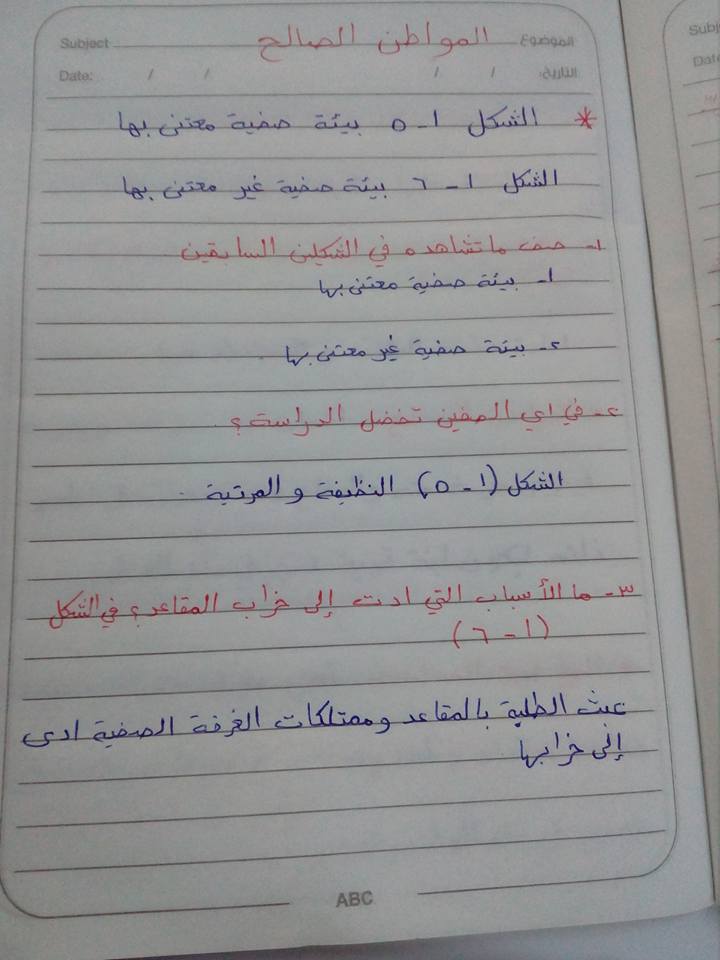 Subject المواطن الصالح الموضوع
Date: / / / / التاريخ:
* الشكل ١-٥ بيئة صفية معتنى بها
الشكل ١-٦ بيئة صفية غير معتنى بها
١- صف ما تشاهده في الشكلين السابقين
١- بيئة صفية معتنى بها
٢- بيئة صفية غير معتنى بها .
٢- في اي الصفين تفضل الدراسة ؟
الشكل (١-٥) النظيفة و المرتبة .
٣- ما الأسباب التي ادت إلى خراب المقاعد ؟ في الشكل
(١-٦)
عبث الطلبة بالمقاعد وممتلكات الغرفة الصفية ادى
إلى خرابها
ABC
Subj
Dat